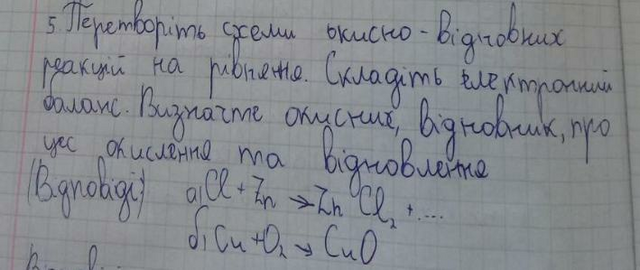 5. Перетворіть схеми окисно-відновних
реакцій на рівняння. Складіть електронний
баланс. Визначте окисник, відновник, про
цес окислення та відновлення
(Відповіді) а) Cl + Zn → Zn Cl₂ + ....
б) Cu + O₂ → CuO